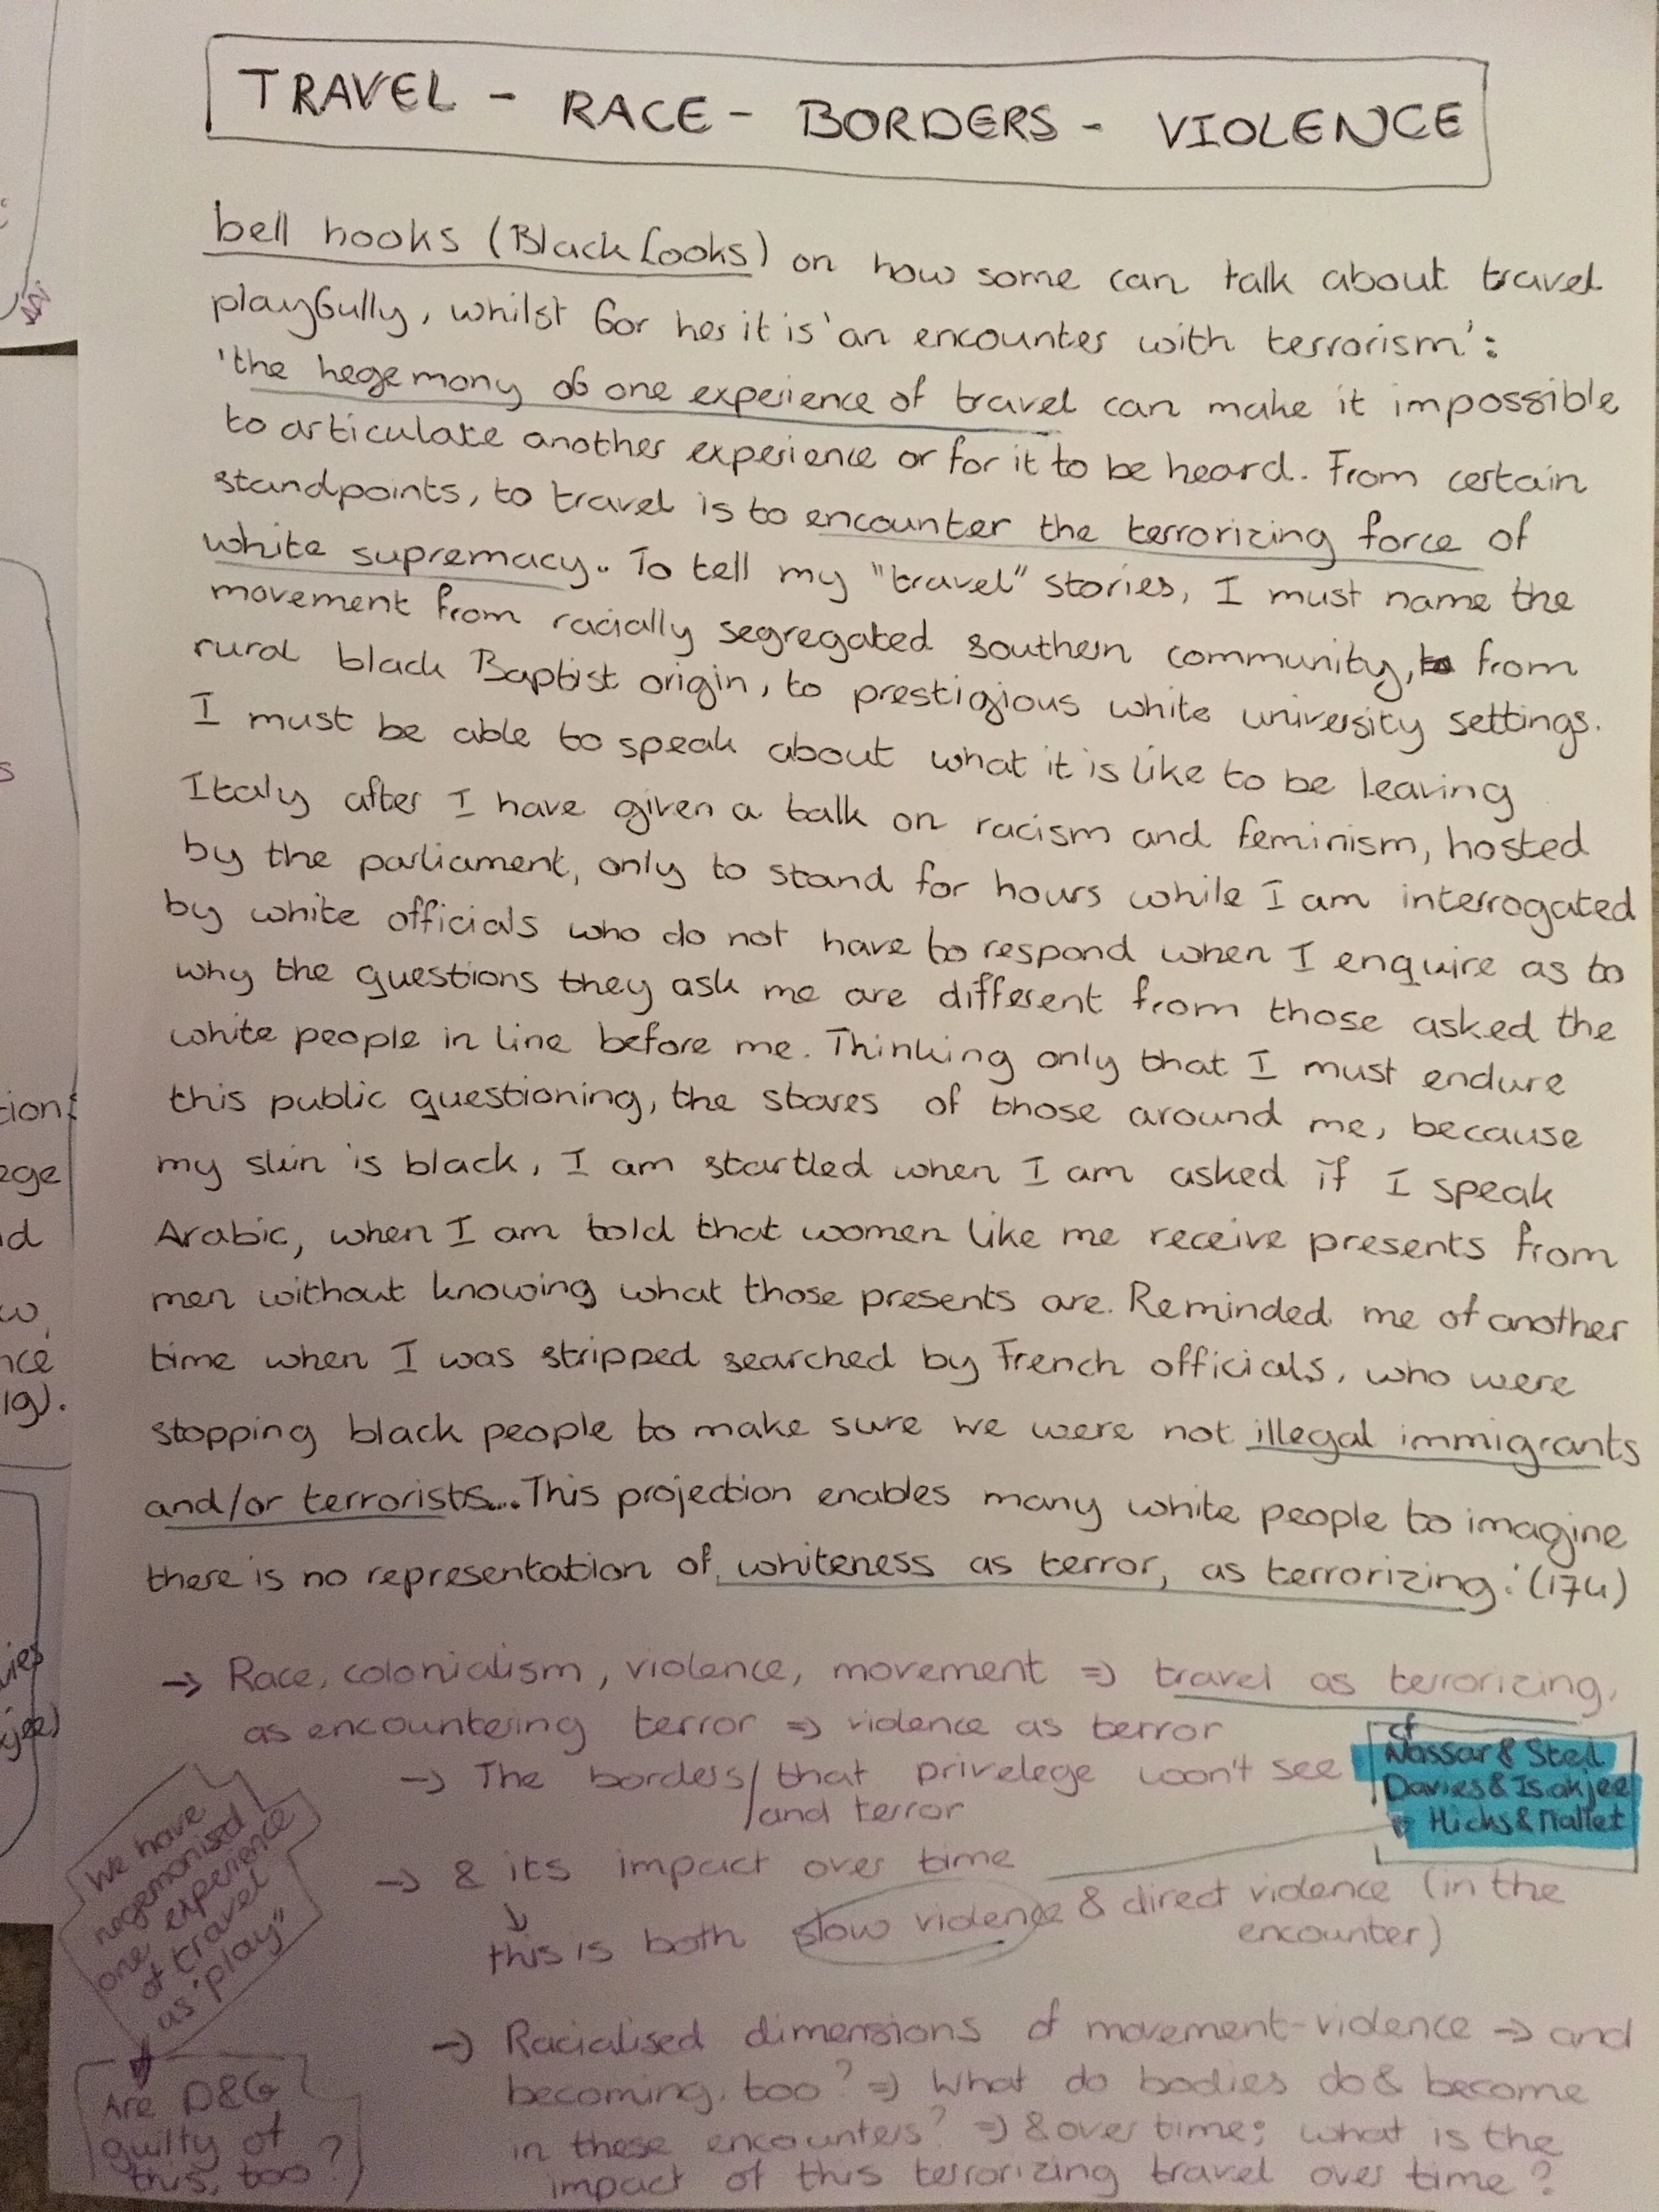 TRAVEL - RACE - BORDERS - VIOLENCE
bell hooks (Black Looks) on how some can talk about travel
playfully, whilst for her it is 'an encounter with terrorism':
'the hegemony of one experience of travel can make it impossible
to articulate another experience or for it to be heard. From certain
standpoints, to travel is to encounter the terrorizing force of
white supremacy. To tell my "travel" stories, I must name the
movement from racially segregated southern community, from
rural black Baptist origin, to prestigious white university settings.
I must be able to speak about what it is like to be leaving
Italy after I have given a talk on racism and feminism, hosted
by the parliament, only to stand for hours while I am interrogated
by white officials who do not have to respond when I enquire as to
why the questions they ask me are different from those asked the
white people in line before me. Thinking only that I must endure
this public questioning, the stares of those around me, because
my skin is black, I am startled when I am asked if I speak
Arabic, when I am told that women like me receive presents from
men without knowing what those presents are. Reminded me of another
time when I was stripped searched by French officials, who were
stopping black people to make sure we were not illegal immigrants
and/or terrorists... This projection enables many white people to imagine
there is no representation of whiteness as terror, as terrorizing.' (174)
→ Race, colonialism, violence, movement ⇒ travel as terrorizing,
as encountering terror ⇒ violence as terror
→ The borders / that privelege won't see
/ and terror
cf
Nassar & Stel
Davies & Isakjee
Hicks & Mallet
→ & its impact over time
↓
this is both slow violence & direct violence (in the
encounter)
We have
hegemonised
one experience
of travel
as "play"
↓
Are D&G
guilty of
this, too?
→ Racialised dimensions of movement-violence → and
becoming, too? ⇒ What do bodies do & become
in these encounters? ⇒ & over time; what is the
impact of this terrorizing travel over time?
ege
nce
19).